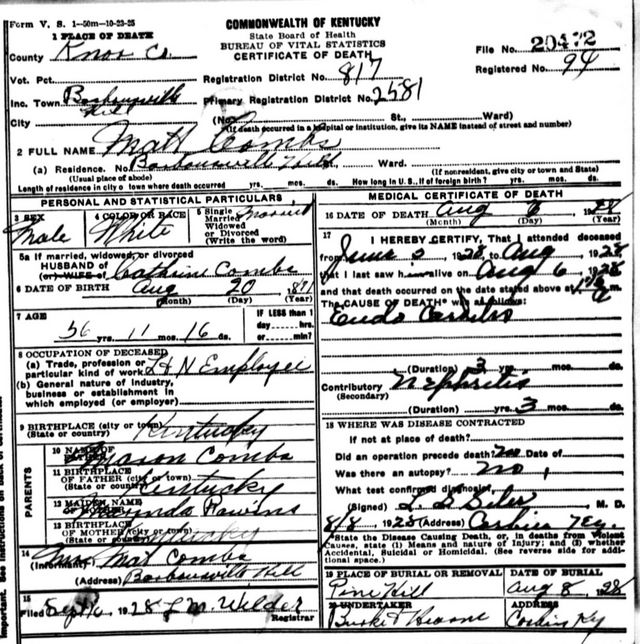 Form V. S. 1-50m-10-23-25
COMMONWEALTH OF KENTUCKY
State Board of Health
BUREAU OF VITAL STATISTICS
CERTIFICATE OF DEATH
1 PLACE OF DEATH
County Knox Co.
File No. 20472
Registered No. 94
Vot. Pct.
Registration District No. 817
Inc. Town Barbourville Hill
Primary Registration District No. 2581
City
(No. St., Ward)
(If death occurred in a hospital or institution, give its NAME instead of street and number)
2 FULL NAME Matt Combs
(a) Residence. No. Barbourville Hill Ward.
(Usual place of abode)
(If nonresident, give city or town and State)
Length of residence in city or town where death occurred yrs. mos. ds. How long in U. S., if of foreign birth? yrs. mos. ds.
PERSONAL AND STATISTICAL PARTICULARS
3 SEX
Male
4 COLOR OR RACE
White
5 Single
Married
Widowed
or Divorced
(Write the word)
Married
5a If married, widowed, or divorced
HUSBAND of
(or) WIFE of
Combs
6 DATE OF BIRTH Aug 20 1871
(Month) (Day) (Year)
7 AGE
56 yrs. 11 mos. 16 ds.
IF LESS than 1
day hrs.
or min?
8 OCCUPATION OF DECEASED
(a) Trade, profession or
particular kind of work L H N Employee
(b) General nature of industry,
business or establishment in
which employed (or employer)
9 BIRTHPLACE (city or town)
(State or country) Kentucky
PARENTS
10 NAME OF
FATHER
Mason Combs
11 BIRTHPLACE
OF FATHER (city or town)
(State or country) Kentucky
12 MAIDEN NAME
OF MOTHER
13 BIRTHPLACE
OF MOTHER (city or town)
Kentucky
14
(Informant) Mat Combs
(Address) Barbourville Hill
15
Filed Sept 6, 1928 L M. Wilder
Registrar
MEDICAL CERTIFICATE OF DEATH
16 DATE OF DEATH Aug 6 1928
(Month) (Day) (Year)
17
I HEREBY CERTIFY, That I attended deceased
from June 2 1928, to Aug 1928
that I last saw h alive on Aug 6 1928
and that death occurred on the date stated above at
The CAUSE OF DEATH* was as follows:
Endo Carditis
(Duration) 3 yrs. mos. ds.
Contributory Nephritis
(Secondary)
(Duration) yrs. 3 mos. ds.
18 WHERE WAS DISEASE CONTRACTED
If not at place of death?
Did an operation precede death? no Date of
Was there an autopsy? no
What test confirmed diagnosis?
(Signed) M. D.
8/8, 1928 (Address) Corbin Ky.
*State the Disease Causing Death, or, in deaths from Violent
Causes, state (1) Means and nature of Injury; and (2) whether
Accidental, Suicidal or Homicidal. (See reverse side for addi-
tional space.)
19 PLACE OF BURIAL OR REMOVAL
Pine Hill
DATE OF BURIAL
Aug 8 1928
20 UNDERTAKER
ADDRESS
Corbin Ky